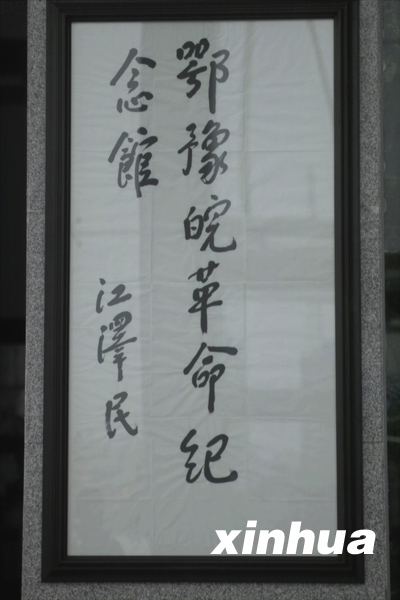 鄂豫皖革命纪
念館
江澤民
xinhua